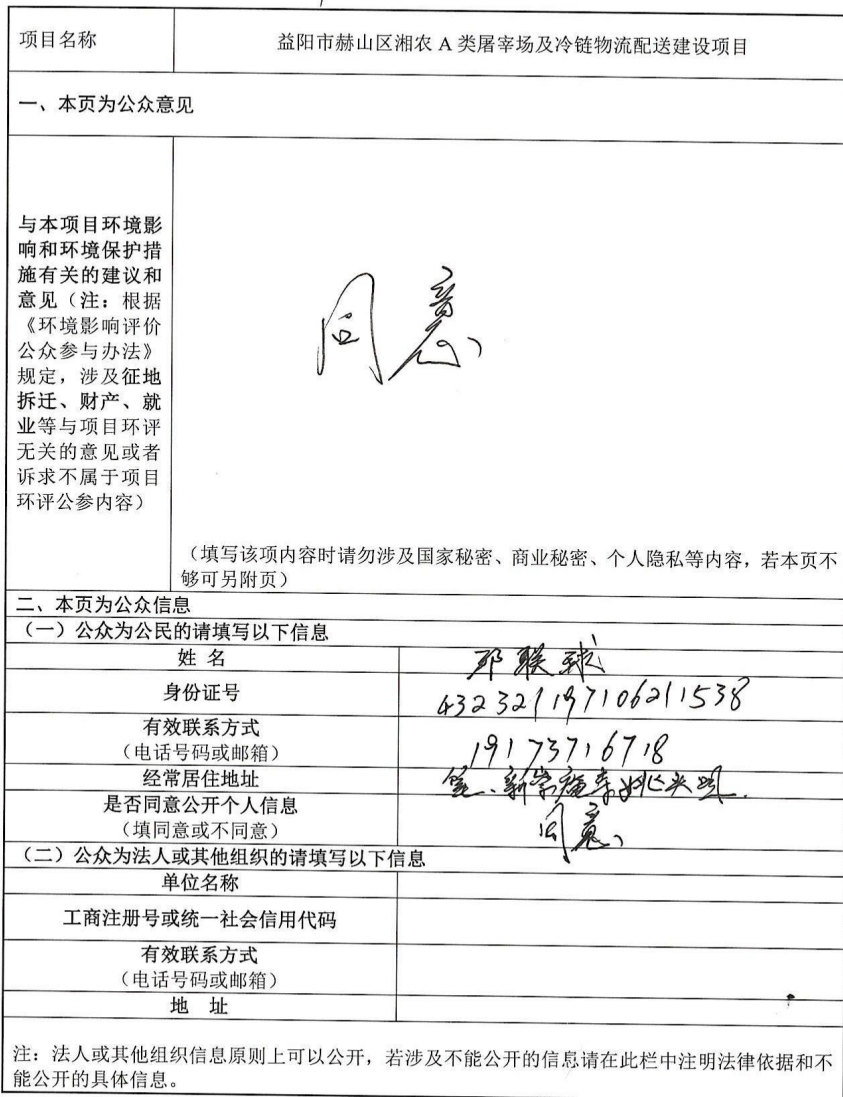 项目名称
益阳市赫山区湘农 A 类屠宰场及冷链物流配送建设项目
一、本页为公众意见
与本项目环境影
响和环境保护措
施有关的建议和
意见（注：根据
《环境影响评价
公众参与办法》
规定，涉及征地
拆迁、财产、就
业等与项目环评
无关的意见或者
诉求不属于项目
环评公参内容）
同意
（填写该项内容时请勿涉及国家秘密、商业秘密、个人隐私等内容，若本页不
够可另附页）
二、本页为公众信息
（一）公众为公民的请填写以下信息
姓 名
联球
身份证号
432321197106211538
有效联系方式
（电话号码或邮箱）
19173716718
经常居住地址
是否同意公开个人信息
（填同意或不同意）
同意
（二）公众为法人或其他组织的请填写以下信息
单位名称
工商注册号或统一社会信用代码
有效联系方式
（电话号码或邮箱）
地 址
注：法人或其他组织信息原则上可以公开，若涉及不能公开的信息请在此栏中注明法律依据和不
能公开的具体信息。